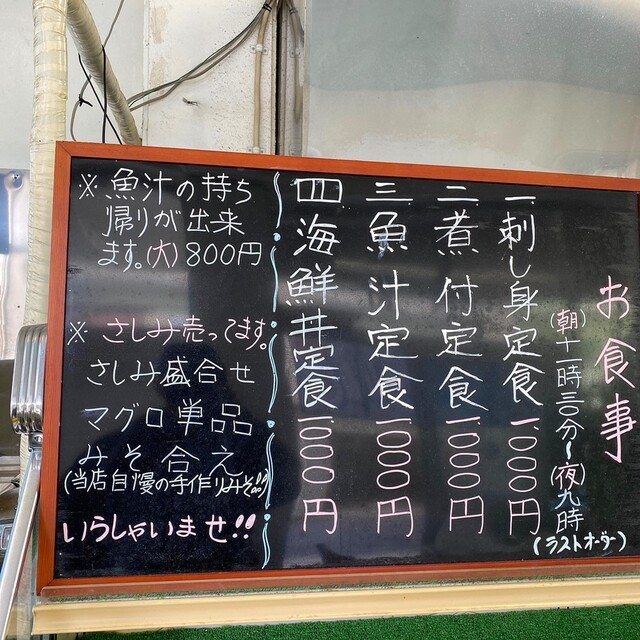 お食事
(朝)十一時三〇分~(夜)九時
(ラストオーダー)
一刺し身定食一、〇〇〇円
二煮付定食一、〇〇〇円
三魚汁定食一、〇〇〇円
四海鮮丼定食一、〇〇〇円
※魚汁の持ち
帰りが出来
ます。(大)800円
※さしみ売ってます。
さしみ盛合せ
マグロ単品
みそ合え
(当店自慢の手作りみそ!!)
いらしゃいませ!!